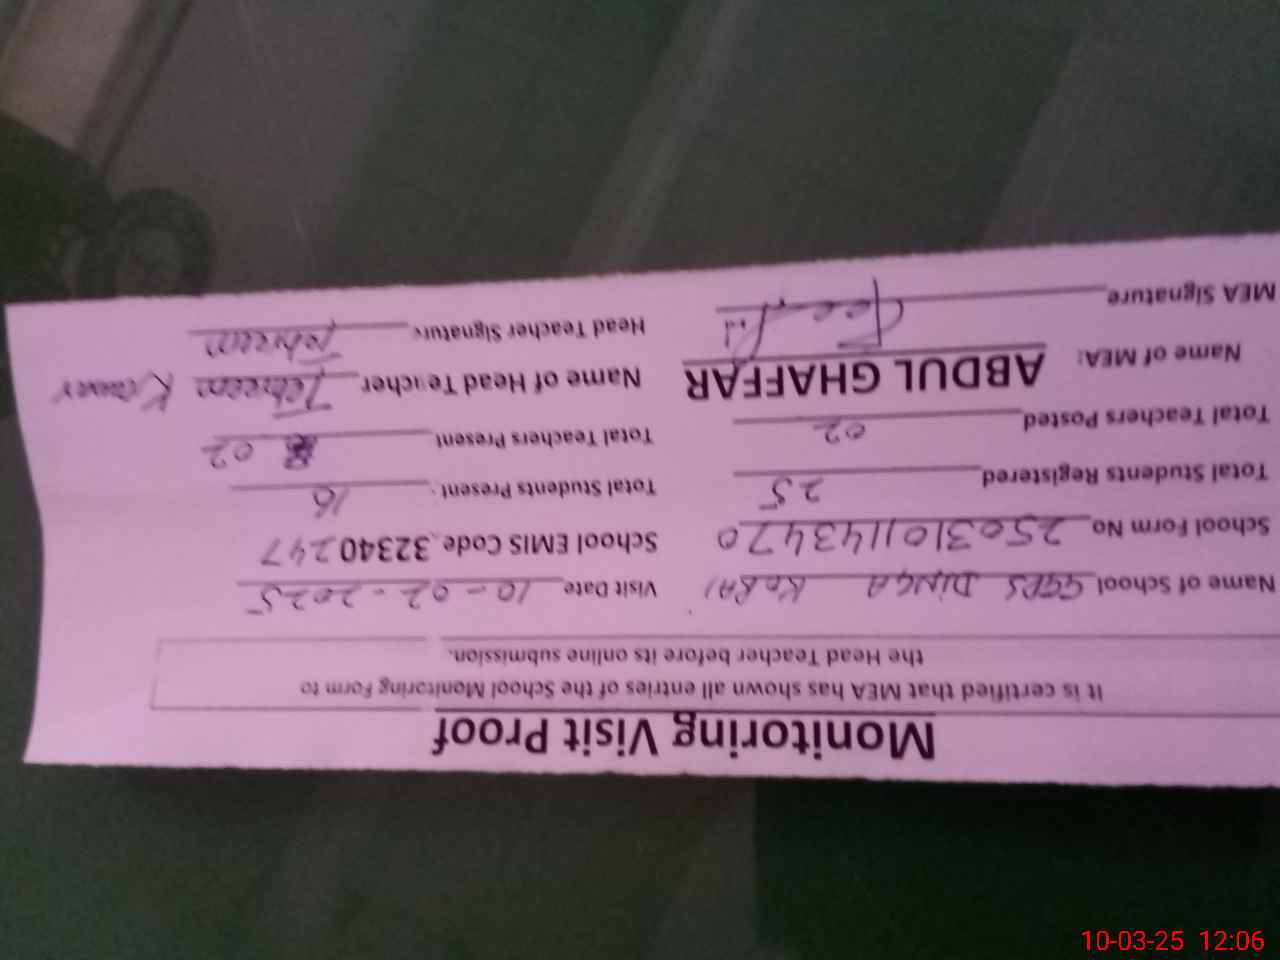 Monitoring Visit Proof
It is certified that MEA has shown all entries of the School Monitoring Form to
the Head Teacher before its online submission.
Name of School GGPS DINGA KORAI Visit Date 10-02-2025
School Form No 250310114 3470 School EMIS Code 32340247
Total Students Registered 25 Total Students Present 16
Total Teachers Posted 02 Total Teachers Present 02
Name of MEA: ABDUL GHAFFAR Name of Head Teacher Tehreem
MEA Signature Head Teacher Signature Tehreem
10-03-25 12:06